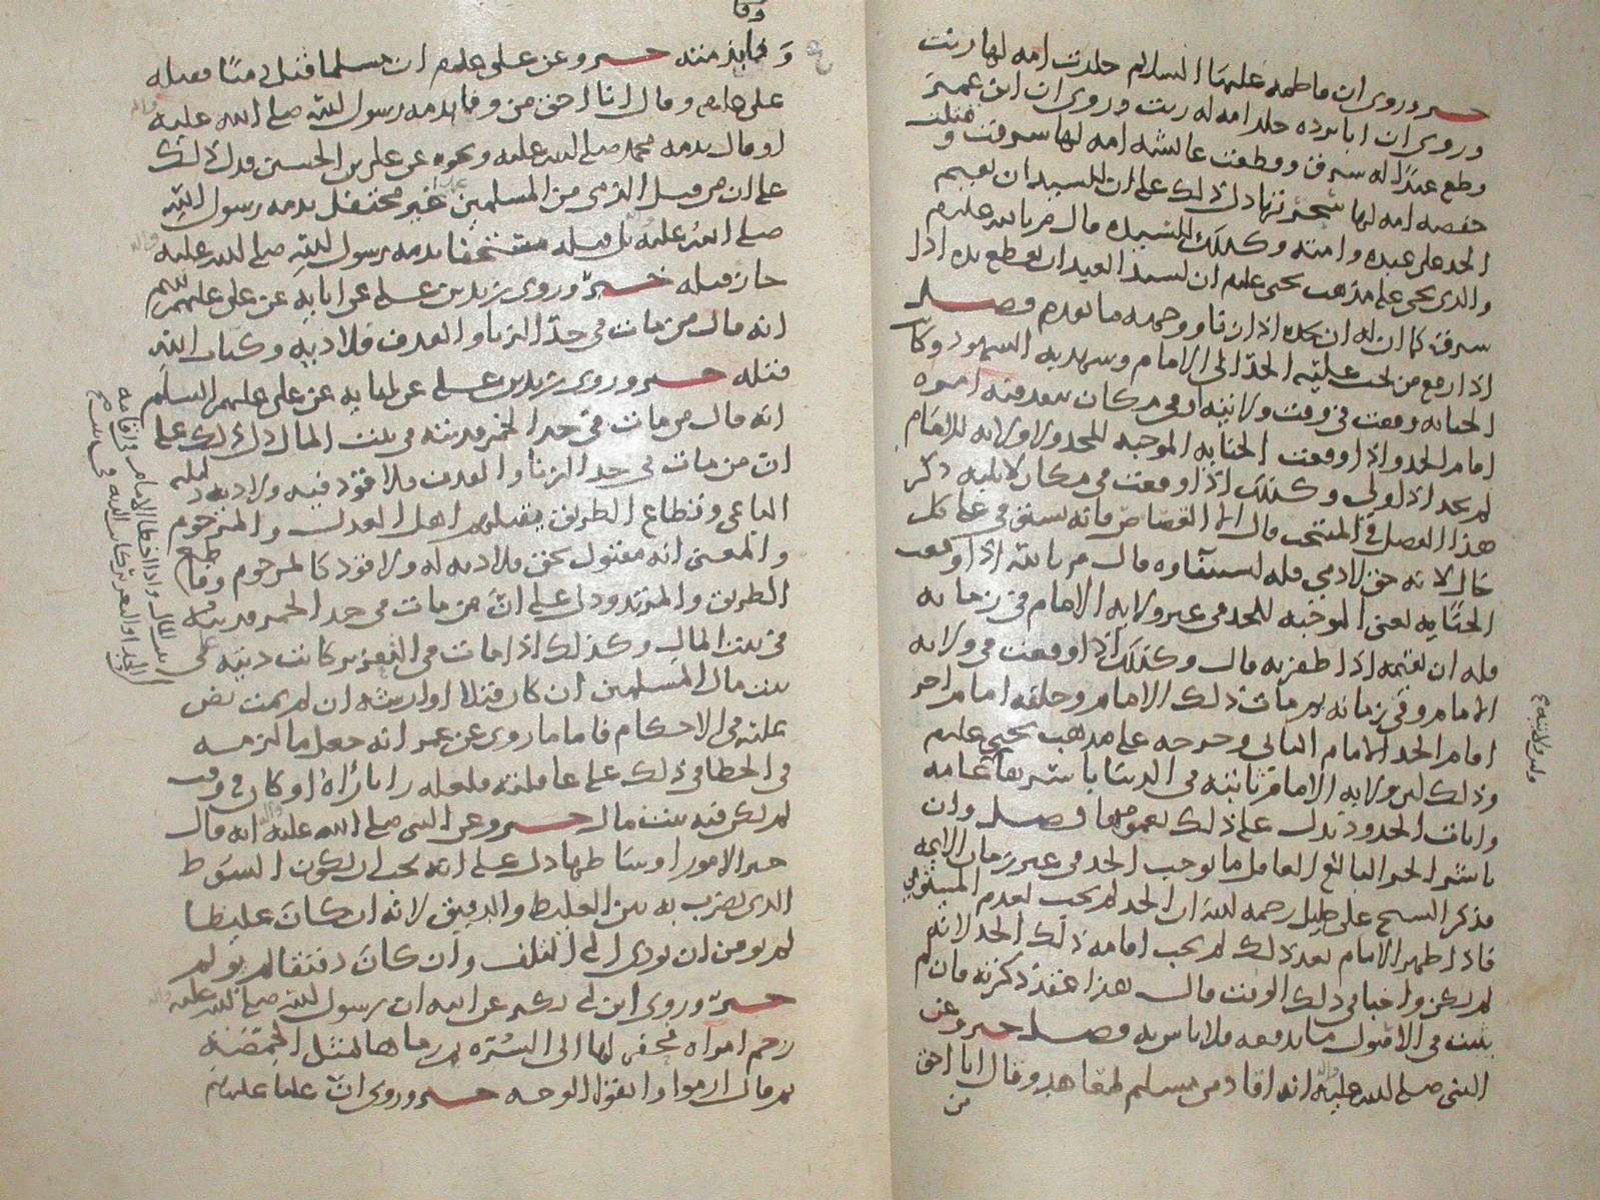 خبر وروي ان فاطمه عليها السلام جلدت امه لها زنت
وروي ان ابا برده جلد امه له زنت وروي ان ابن عمر
قطع عبدًا له سرق وقطعت عائشه امه لها سرقت وقتلت
حفصه امه لها سحرتها دل ذلك على ان للسيد ان يقيم
الحد على عبده وامته وكذلك للسيده قال م بالله عليلم
والذي يجي على مذهب يحيى عليلم ان لسيد العبد ان يقطع يده اذا
سرق كما ان له ان يحده اذا زنا ووجهه ما تقدم فصل
اذا رفع من يجب عليه الحد الى الامام وشهد به الشهود وكانت
الجنايه وقعت في وقت ولايته او في مكان ينفد فيه امره
اقام الحد واذا وقعت الجنايه الموجبه للحد ولا ولايه للامام
لم يحد اذا ولي وكذلك اذا وقعت في مكان لا يليه ذكر
هذا الفصل في المنتخب قال الا القصاص فانه يستوفى على كل
حال لانه حق لادمي فله استيفاوه قال م بالله اذا وقعت
الجنايه يعني الموجبه للحد في غير ولايه الامام في زمانه
فله ان يقيمه اذا ظفر به قال وكذلك اذا وقعت في ولايه
الامام وفي زمانه ثم مات ذلك الامام وخلفه امام اخر
اقام الحد الامام الثاني وخرجه على مذهب يحيى عليلم
وذلك لان ولايه الامام ثابته في الدنيا باسرها عامه
وايات الحدود تدل على ذلك بعمومها فصل وان
باشر الحر البالغ العاقل ما يوجب الحد في غير زمان الايمه
فذكر الشيخ علي خليل رحمه الله ان الحد لم يجب لعدم المستوفي
فاذا ظهر الامام بعد ذلك لم يجب اقامه ذلك الحد لانه
لم يكن واجبا في ذلك الوقت قال هذا عقد ذكرته فان لم
يثبت في الاصول ما يدفعه فلا باس به فصل خبر وعن
النبي صلى الله عليه واله انه اقاد من مسلم بمعاهد وقال انا احق
من
وفا
وفا بذمته خبر وعن علي عليلم ان مسلما قتل ذميًا فقتله
علي عليلم وقال انا احق من وفا بذمه رسول الله صلى الله عليه واله
او قال بذمه محمد صلى الله عليه ونحوه عن علي بن الحسين فدل ذلك
على ان من قتل الذمي من المسلمين غير محتفل بذمه رسول الله
صلى الله عليه بل قتله مستخفا بذمه رسول الله صلى الله عليه واله
جاز قتله خبر وروى زيد بن علي عن ابايه عن علي عليهم السلم
انه قال من مات في حد الزنا والقذف فلا ديه له وكتاب الله
قتله خبر وروى زيد بن علي عن ابايه عن علي عليهم السلم
انه قال من مات في حد الخمر فديته في بيت المال دل ذلك على
ان من مات في حد الزنا والقذف فلا قود فيه ولا ديه
الباغي وقطاع الطريق يقتلهم اهل العدل والمرجوم
والمعنى انه مقتول بحق فلا ديه له ولا قود كالمرجوم وقاطع
الطريق والمرتد ودل على ان من مات في حد الخمر فديته
في بيت المال وكذلك اذا مات في التعزير كانت ديته على
بيت مال المسلمين ان كان قتلا او ارشه ان لم يمت نص
عليه في الاحكام فاما ما روي عن عمر انه جعل ما لزمه
في الخطا في ذلك على عاقلته فلعله رايًا رآه او كان في وقت
لم يكن فيه بيت مال خبر وعن النبي صلى الله عليه واله انه قال
خير الامور اوساطها دل على انه يجب ان يكون السوط
الذي يضرب به بين الغليظ والدقيق لانه ان كان غليظا
لم يومن ان يودي الى التلف وان كان دقيقا لم يولم
خبر وروى ابن ابي بكره عن ابيه ان رسول الله صلى الله عليه واله
رجم امراه فحفر لها الى السره ثم رماها بمثل الحمصه
ثم قال ارموا واتقوا الوجه خبر وروي ان عليا عليلم